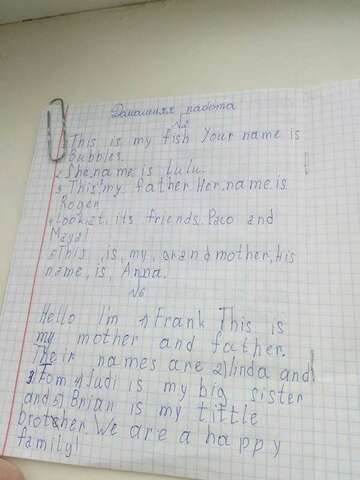 Домашняя работа
№2
1. This is my fish Your name is
Bubbles.
2. She name is Lulu.
3 This my father. Her name is
Roger
4 Look at its friends, Paco and
Maya!
5 This is my grandmother, His
name is Anna.
№6
Hello I'm 1) Frank This is
my mother and father.
Their names are 2) linda and
3) Tom 4) Judi is my big sister
and 5) Brian is my little
brother. We are a happy
family!